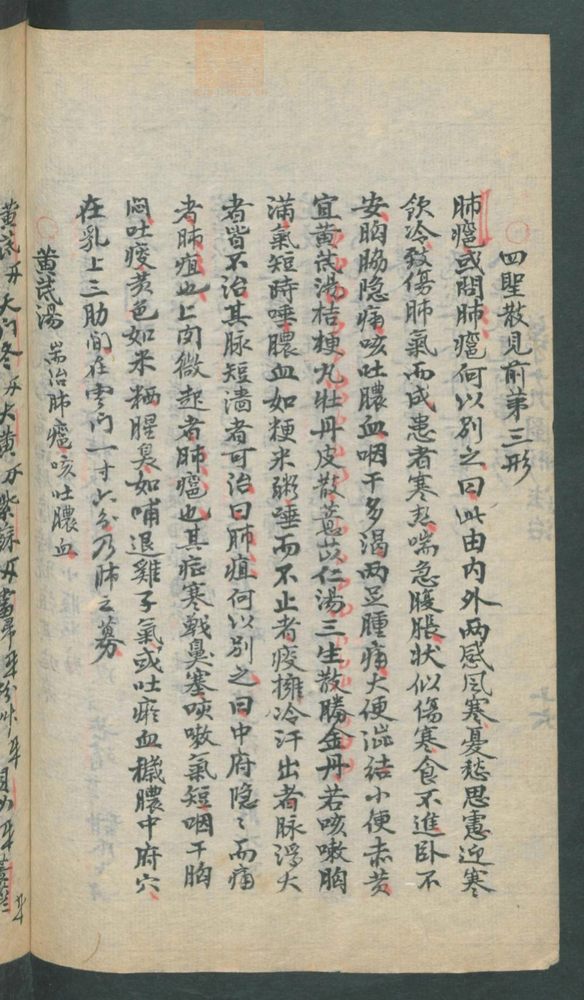 四聖散見前第三形
肺癰或問肺癰何以别之曰此由内外两感風寒憂愁思慮迎寒
飲冷致傷肺氣而成患者寒热喘急腹脹状似傷寒食不進卧不
安胸脇隐痛咳吐膿血咽干多渴两足腫痛大便澁结小便赤黄
宜黄芪湯桔梗丸牡丹皮散薏苡仁湯三生散勝金丹若咳嗽胸
滿氣短時唾膿血如粳米粥唾而不止者痰擁冷汗出者脉浮大
者皆不治其脉短濇者可治曰肺疽何以别之曰中府隐〻而痛
者肺疽也上肉微起者肺癰也其症寒戰鼻塞咳嗽氣短咽干胸
悶吐痰黄色如米粞腥臭如哺退雞子氣或吐瘀血穢膿中府穴
在乳上三肋间在雲门一寸六分乃肺之募
黄芪湯 耑治肺癰咳吐膿血
黄芪 天门冬 大黄 紫蘇